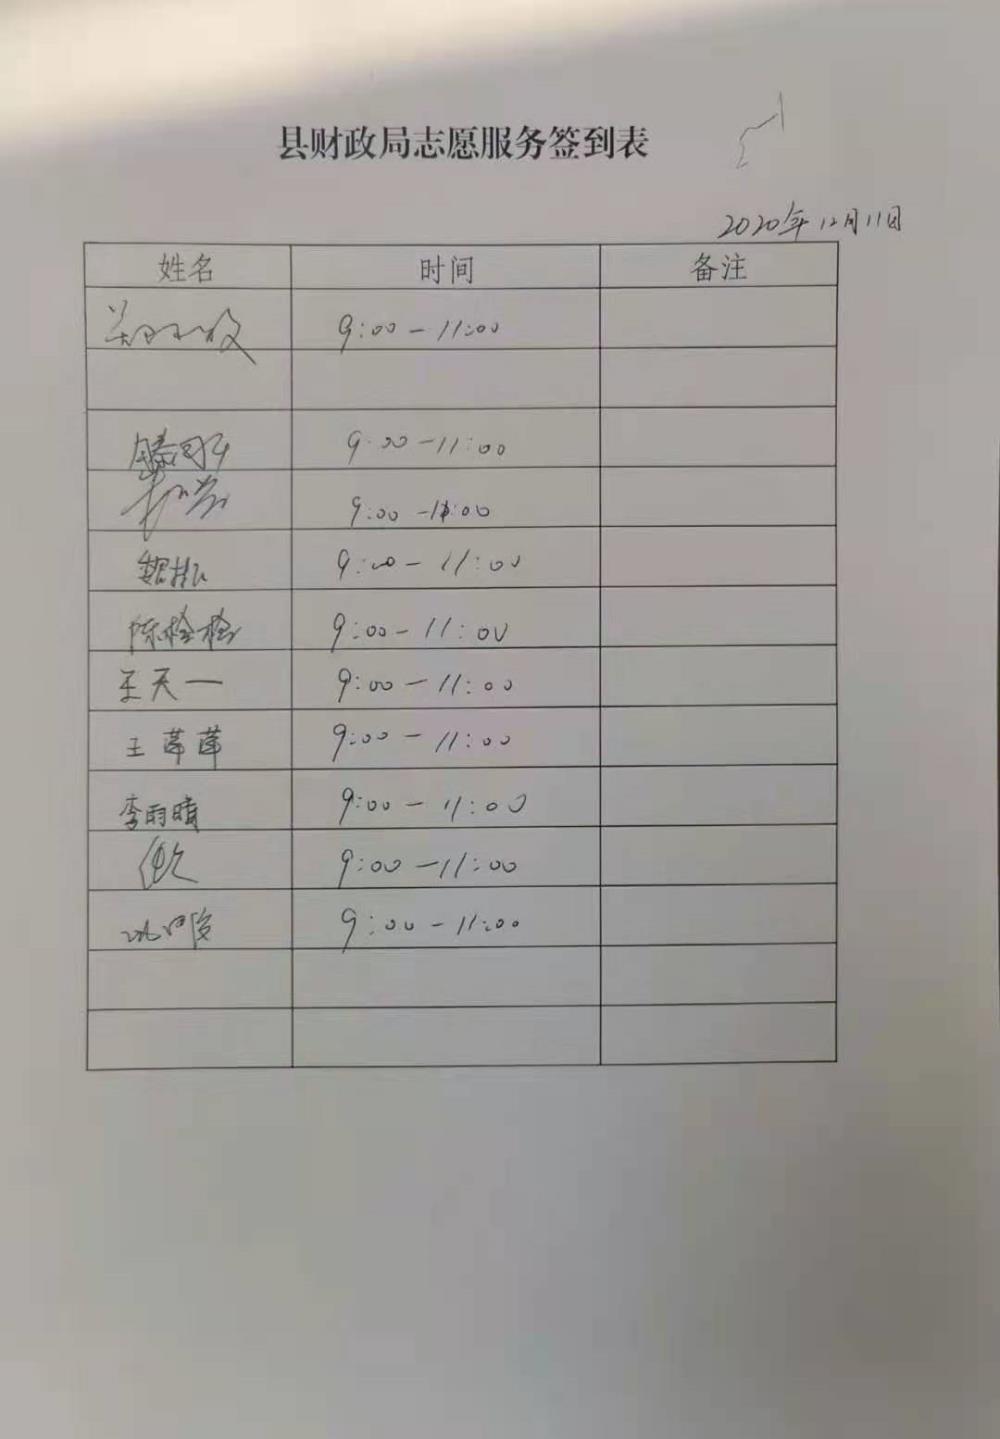 县财政局志愿服务签到表
2020年12月11日
姓名 时间 备注
9:00-11:00
9:00-11:00
9:00-11:00
魏振 9:00-11:00
陈栓栓 9:00-11:00
王天一 9:00-11:00
王茸茸 9:00-11:00
李雨晴 9:00-11:00
9:00-11:00
9:00-11:00